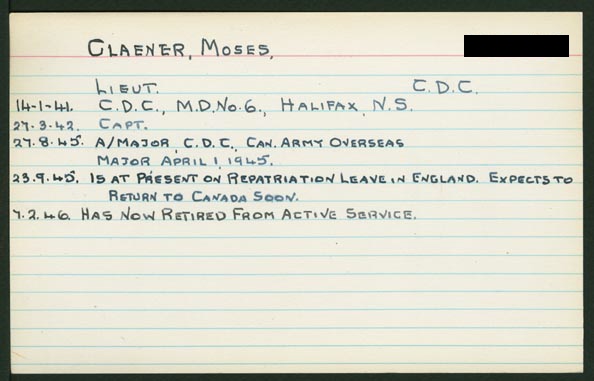 CLAENER, MOSES.
LIEUT. C.D.C.
14-1-41. C.D.C., M.D.NO.6., HALIFAX, N.S.
27.3.42. CAPT.
27.8.45. A/MAJOR, C.D.C., CAN. ARMY OVERSEAS
MAJOR APRIL 1, 1945.
23.9.45. IS AT PRESENT ON REPATRIATION LEAVE IN ENGLAND. EXPECTS TO
RETURN TO CANADA SOON.
7.2.46. HAS NOW RETIRED FROM ACTIVE SERVICE.